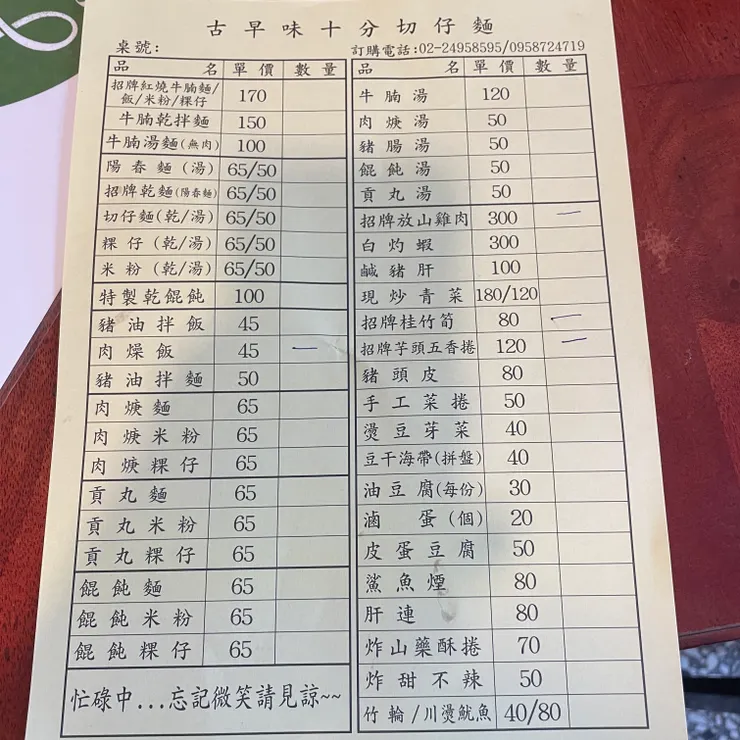 古早味十分切仔麵
桌號：
訂購電話:02-24958595/0958724719
品名 單價 數量
招牌紅燒牛腩麵/
飯/米粉/粿仔 170
牛腩乾拌麵 150
牛腩湯麵(無肉) 100
陽春麵(湯) 65/50
招牌乾麵(陽春麵) 65/50
切仔麵(乾/湯) 65/50
粿仔(乾/湯) 65/50
米粉(乾/湯) 65/50
特製乾餛飩 100
豬油拌飯 45
肉燥飯 45 一
豬油拌麵 50
肉焿麵 65
肉焿米粉 65
肉焿粿仔 65
貢丸麵 65
貢丸米粉 65
貢丸粿仔 65
餛飩麵 65
餛飩米粉 65
餛飩粿仔 65
忙碌中...忘記微笑請見諒~~
品名 單價 數量
牛腩湯 120
肉焿湯 50
豬腸湯 50
餛飩湯 50
貢丸湯 50
招牌放山雞肉 300 一
白灼蝦 300
鹹豬肝 100
現炒青菜 180/120
招牌桂竹筍 80 一
招牌芋頭五香捲 120 一
豬頭皮 80
手工菜捲 50
燙豆芽菜 40
豆干海帶(拼盤) 40
油豆腐(每份) 30
滷蛋(個) 20
皮蛋豆腐 50
鯊魚煙 80
肝連 80
炸山藥酥捲 70
炸甜不辣 50
竹輪/川燙魷魚 40/80